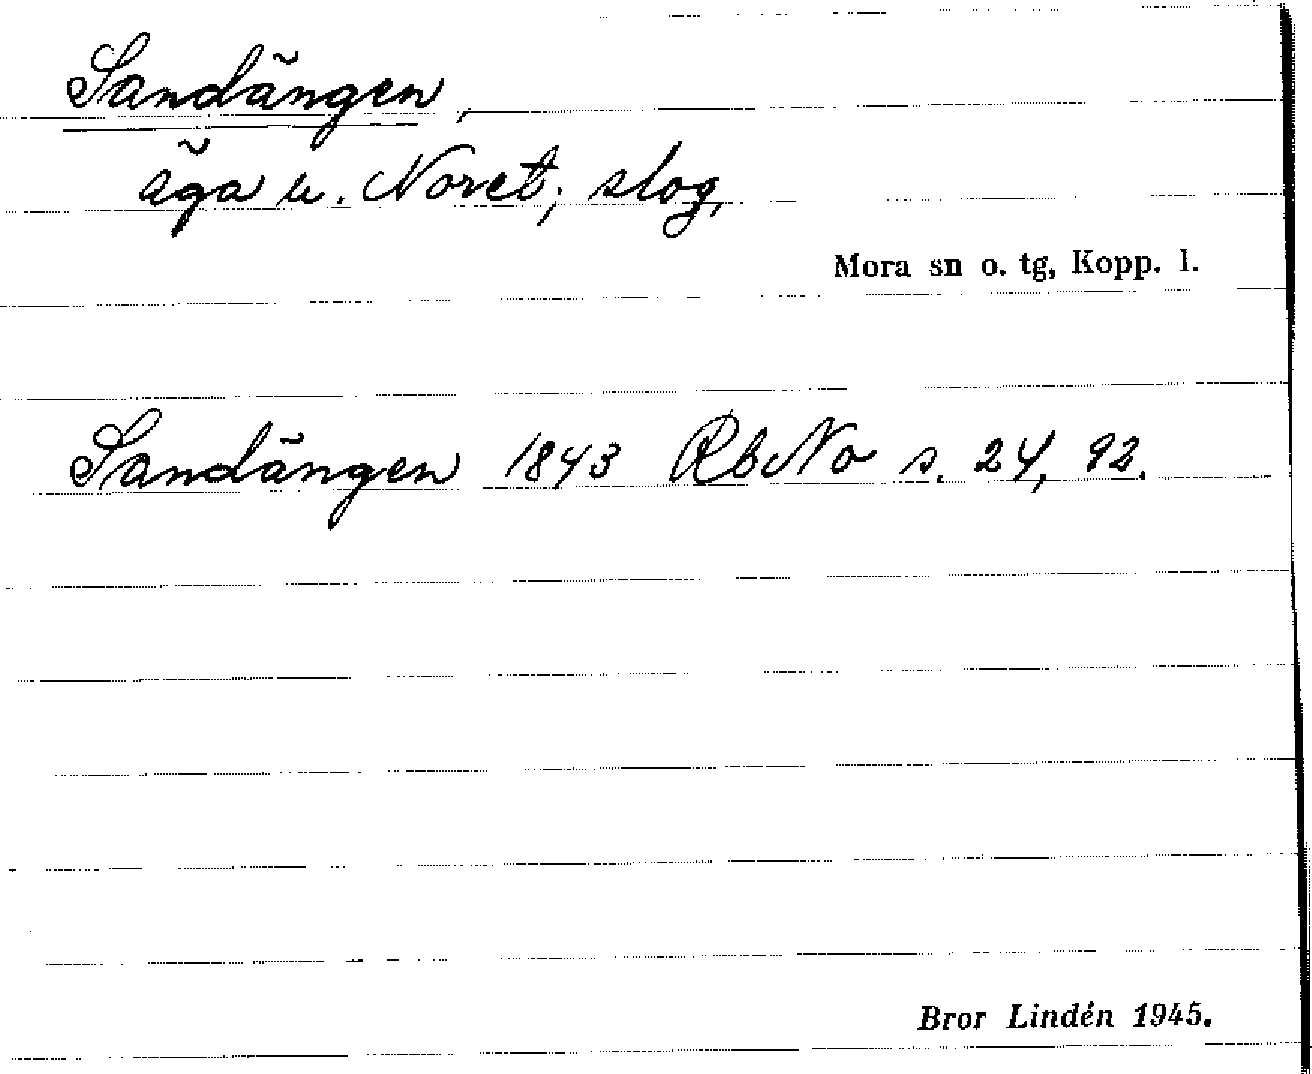 Sandängen,
äga u. Noret; slog,
Mora sn o. tg, Kopp. l.
Sandängen 1843 RbNo s. 24, 92.
Bror Lindén 1945.